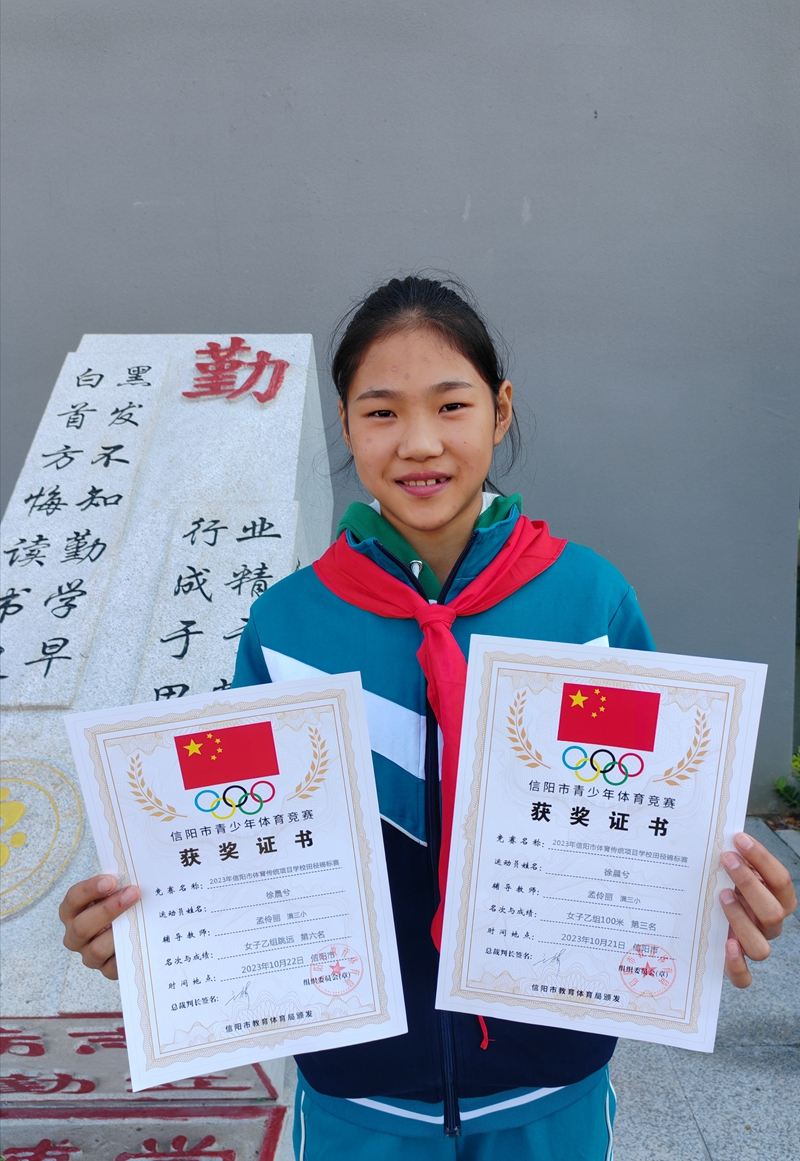 勤
黑发不知勤学早
白首方悔读
业精于
行成于思
信阳市青少年体育竞赛
获奖证书
竞赛名称: 2023年信阳市体育传统项目学校田径锦标赛
运动员姓名: 徐晨兮
辅导教师: 孟伶丽 潢三小
名次与成绩: 女子乙组跳远 第六名
时间地点: 2023年10月22日 信阳市
总裁判长签名:
组织委员会(章)
信阳市教育体育局颁发
信阳市青少年体育竞赛
获奖证书
竞赛名称: 2023年信阳市体育传统项目学校田径锦标赛
运动员姓名: 徐晨兮
辅导教师: 孟伶丽 潢三小
名次与成绩: 女子乙组100米 第三名
时间地点: 2023年10月21日 信阳市
总裁判长签名:
组织委员会(章)
信阳市教育体育局颁发